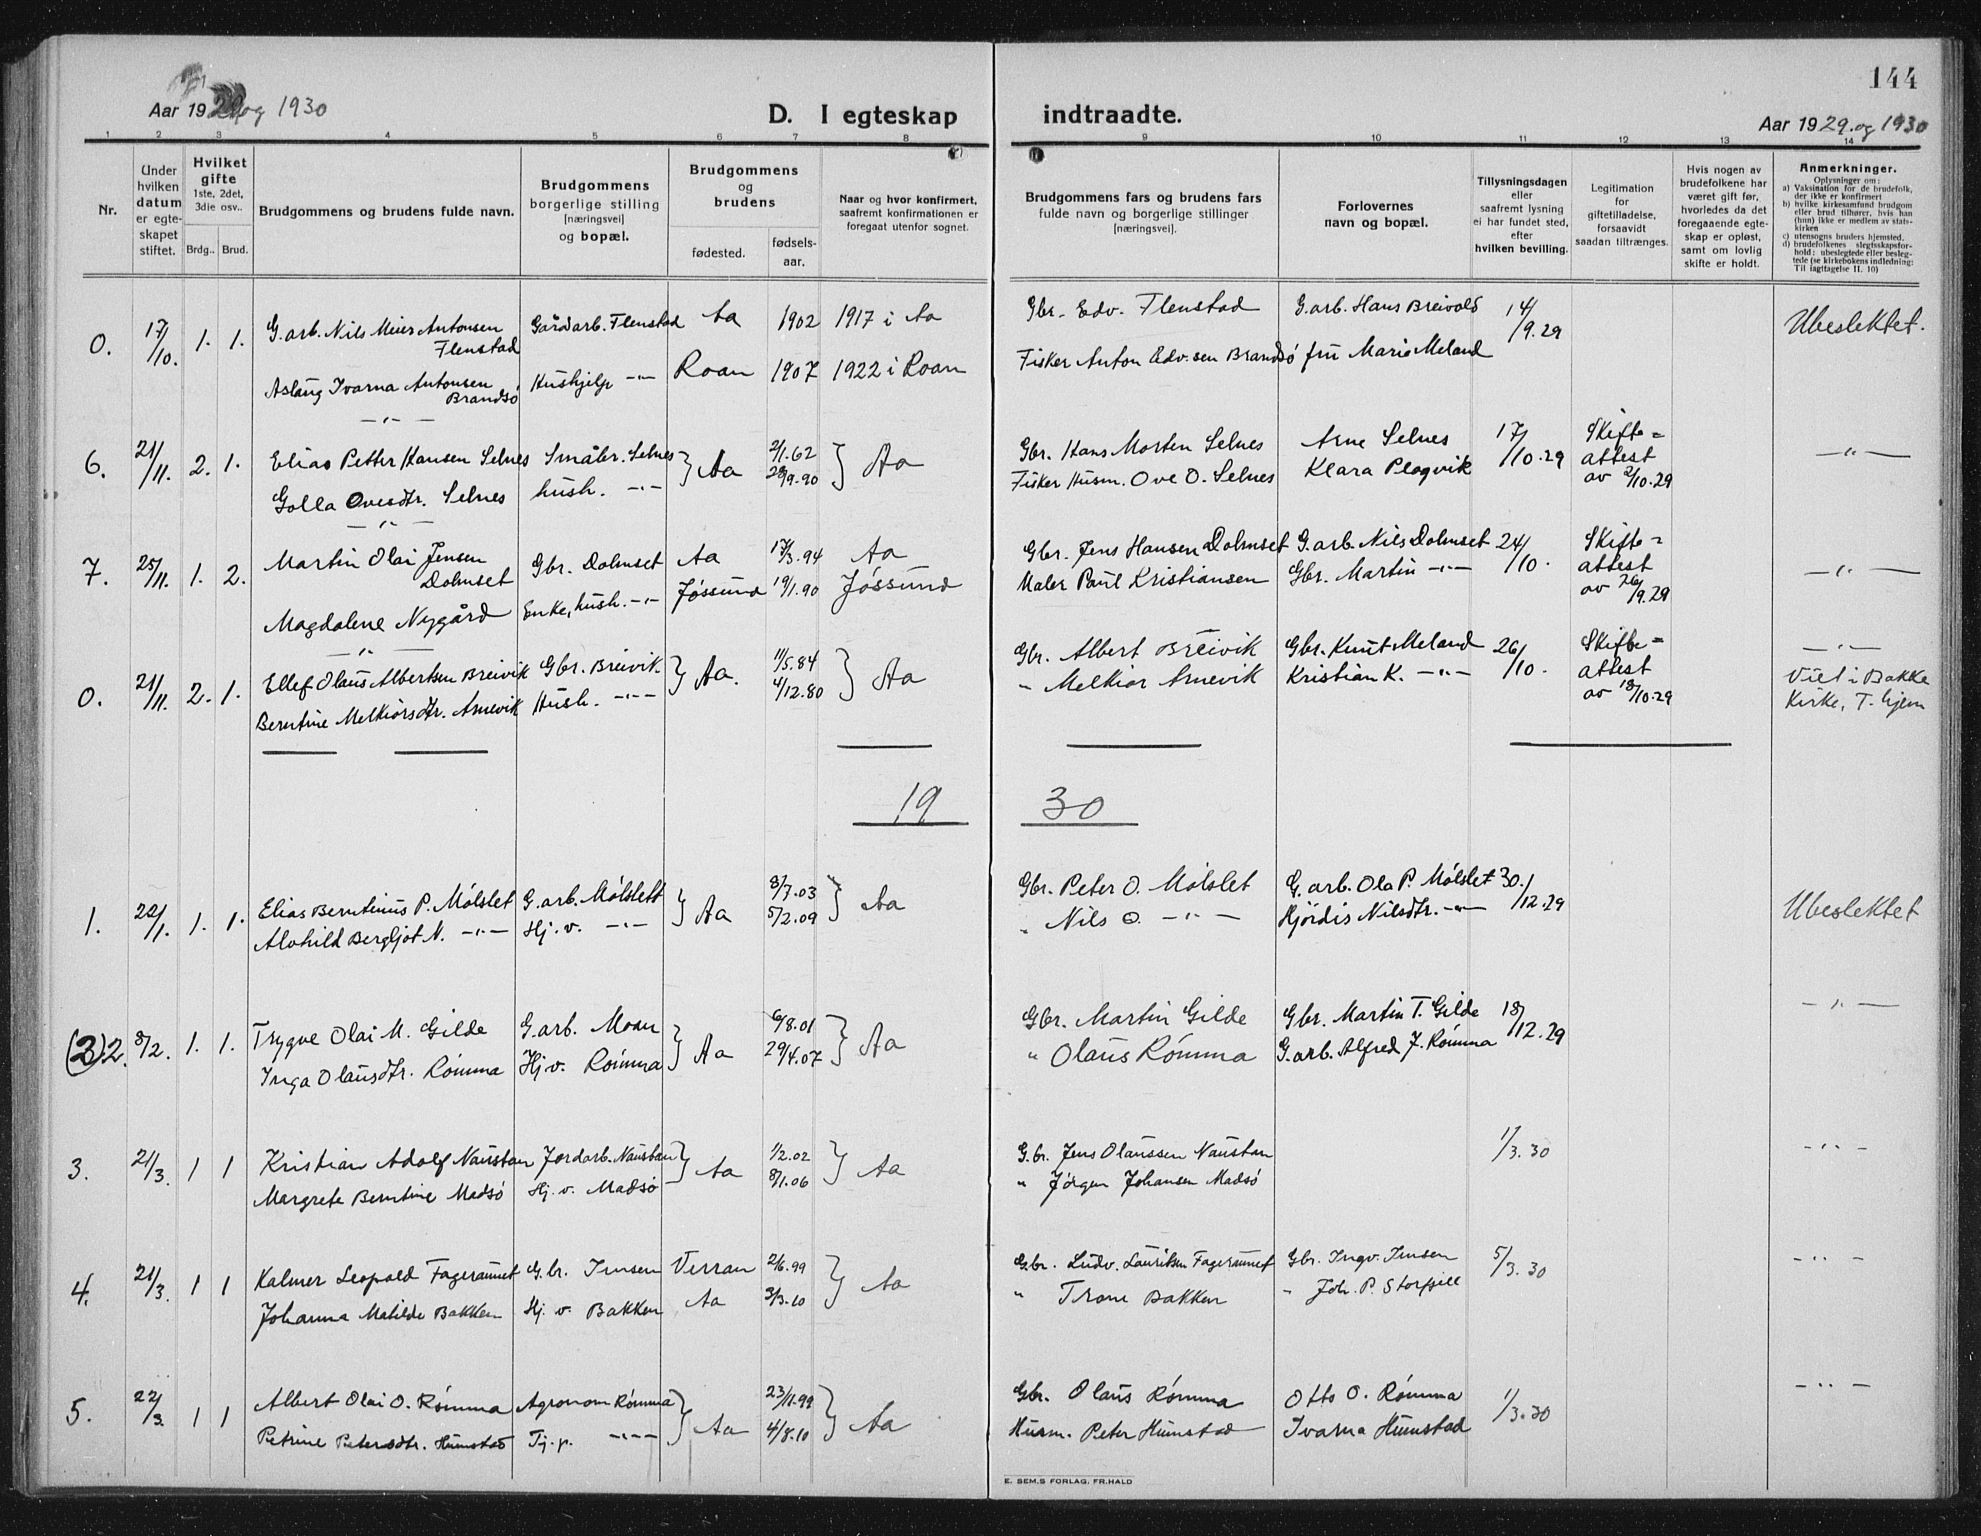 144
Aar 1929 og 1930
D. I egteskap indtraadte.
Aar 1929. og 1930
1 2 3 4 5 6 7 8 9 10 11 12 13 14
Nr.
Under hvilken datum er egteskapet stiftet.
Hvilket gifte 1ste, 2det, 3die osv..
Brdg.. Brud.
Brudgommens og brudens fulde navn.
Brudgommens borgerlige stilling [næringsvei] og bopæl.
Brudgommens og brudens
fødested.
fødselsaar.
Naar og hvor konfirmert, saafremt konfirmationen er foregaat utenfor sognet.
Brudgommens fars og brudens fars fulde navn og borgerlige stillinger [næringsvei].
Forlovernes navn og bopæl.
Tillysningsdagen eller saafremt lysning ei har fundet sted, efter hvilken bevilling.
Legitimation for giftetilladelse, forsaavidt saadan tiltrænges.
Hvis nogen av brudefolkene har været gift før, hvorledes da det foregaaende egteskap er opløst, samt om lovlig skifte er holdt.
Anmerkninger.
Oplysninger om:
a) Vaksination for de brudefolk, der ikke er konfirmert
b) hvilke kirkesamfund brudgom eller brud tilhører, hvis han (hun) ikke er medlem av statskirken
c) utensogns bruders hjemsted.
d) brudefolkenes slegtsskapsforhold: ubeslegtede eller beslegtede (se kirkebokens indledning: Til iagttagelse II. 10)
0. 17/10. 1. 1. G.arb. Nils Meier Antonsen Flenstad Gårdarb. Flenstad Aa 1902 1917 i Aa Gbr. Edv. Flenstad G.arb. Hans Breivold 14/9.29 Ubeslektet.
Aslaug Ivarna Antonsen Brandsø Hushjelp -"- Roan 1907 1922 i Roan Fisker Anton Edv.sen Brandsø fru Marie Meland
-"-
6. 21/11. 2. 1. Elias Petter Hansen Selnes Småbr. Selnes } Aa 2/1.62 } Aa Gbr. Hans Morten Selnes Arne Selnes 17/10.29 Skifteattest av 2/10.29 -"-
Golla Ovesdtr. Selnes hush. -"- 28/9.90 Fisker Husm. Ove O. Selnes Klara Plogvik
-"-
7. 25/11. 1. 2. Martin Olai Jensen Dolmset Gbr. Dolmset Aa 17/3.94 Aa Gbr. Jens Hansen Dolmset G.arb. Nils Dolmset 24/10. Skifteattest av 26/9.29 -"-
Magdalene Nygård Enke, hush. -"- Jøssund 19/1.90 Jøssund Maler Paul Kristiansen Gbr. Martin -"-
-"-
0. 21/11. 2. 1. Ellef Olaus Albertsen Breivik Gbr. Breivik. } Aa. 11/5.84 } Aa Gbr. Albert Breivik Gbr. Knut Meland 26/10. Skifteattest av 18/10.29 -"-
Berntine Melkiorsdtr. Arnevik Hush. -"- 4/12.80 " Melkior Arnevik Kristian K. -"- Viet i Bakke Kirke, T.hjem
19 30
1. 22/1. 1. 1. Elias Berntinus P. Mølslet G.arb. Mølslett } Aa 8/7.03 } Aa Gbr. Peter O. Mølslet G.arb. Ola P. Mølslet 30./12.29 Ubeslektet
Alvhild Bergljot N. -"- Hj.v. -"- 5/2.09 " Nils O. -"- Hjørdis Nilsdtr. -"-
(3) 2. 8/2. 1. 1. Trygve Olai M. Gilde G.arb. Moan } Aa 6/8.01 } Aa Gbr. Martin Gilde Gbr. Martin T. Gilde 18/12.29 -"-
Inga Olausdtr. Rømma Hj.v. Rømma 29/4.07 " Olaus Rømma G.arb. Alfred J. Rømma
3. 21/3. 1 1 Kristian Adolf Naustan Jordarb. Naustan } Aa 1/2.02 } Aa G.br. Jens Olaussen Naustan 1/3.30 -"-
Margrete Berntine Madsø Hj.v. Madsø 8/1.06 " Jørgen Johansen Madsø
4. 21/3. 1 1 Kalmer Leopold Fagerannet G.br. Imsen Verran 2/6.99 } Aa Gbr. Ludv. Lauritsen Fagerannet Gbr. Ingv. Imsen 5/3.30 -"-
Johanna Matilde Bakken Hj.v. Bakken Aa 3/3.10 " Trone Bakken " Joh. P. Storfjell
5. 22/3. 1 1 Albert Olai O. Rømma Agronom Rømma } Aa 23/11.99 } Aa Gbr. Olaus Rømma Otto O. Rømma 1/3.30 -"-
Petrine Petersdtr. Humstad Tj.p. -"- 4/8.10 Husm. Peter Humstad Ivarna Humstad
E. SEM.S FORLAG. FR.HALD